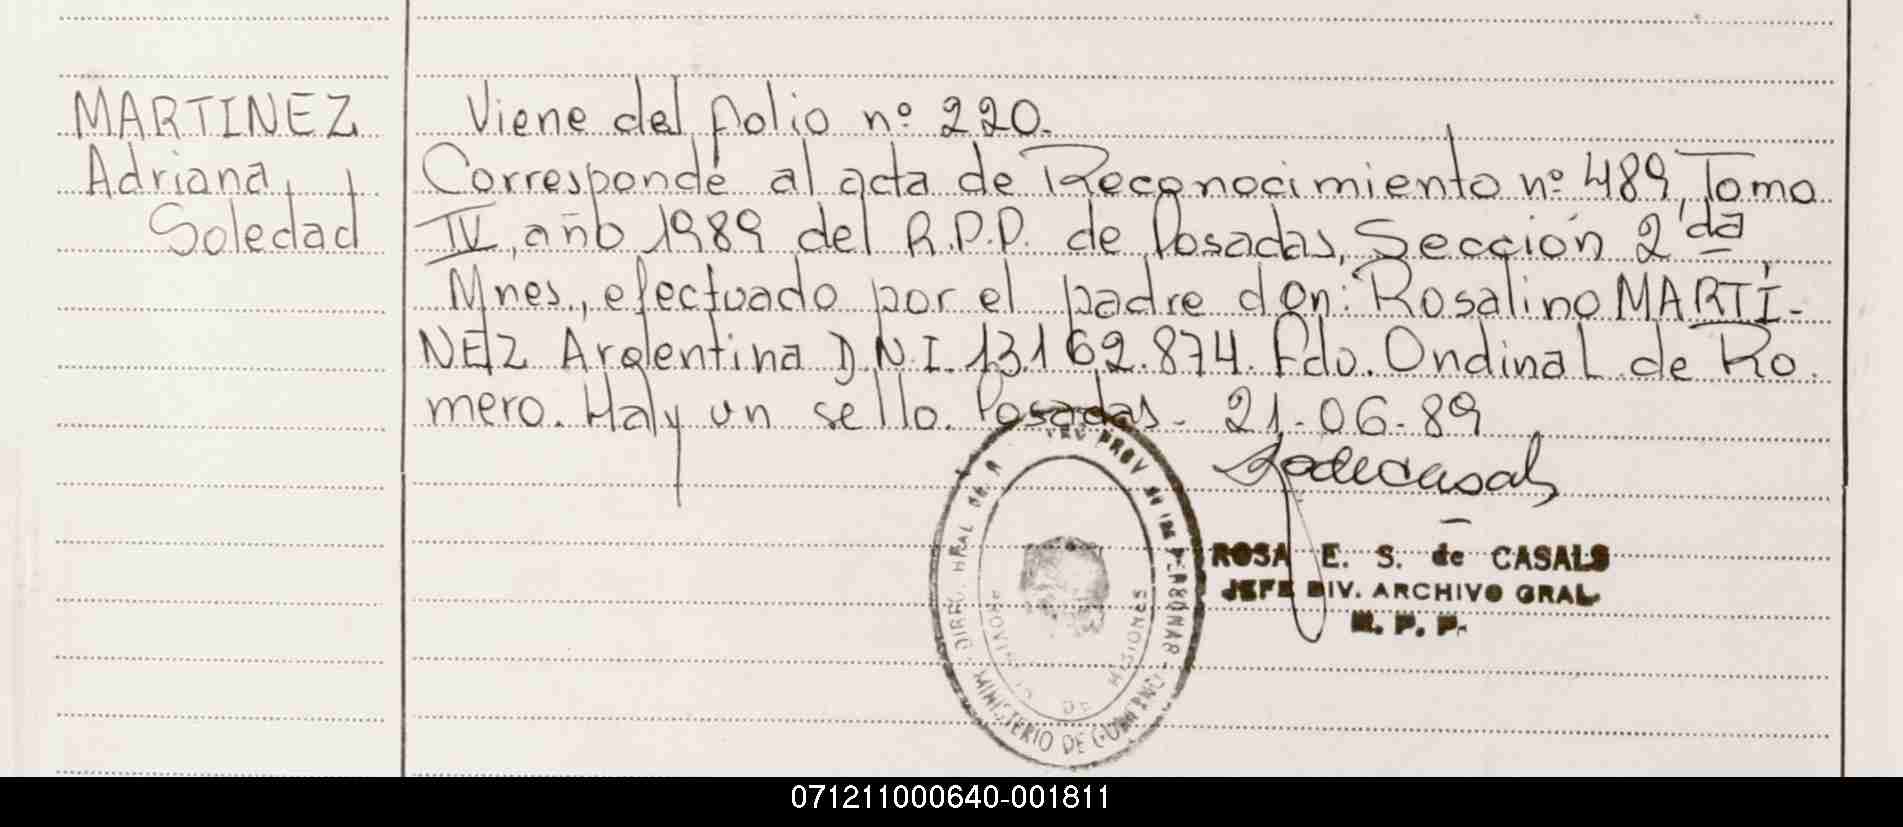 MARTINEZ
Adriana
Soledad
Viene del folio nº 220.
Corresponde al acta de Reconocimiento nº 489, Tomo
IV, año 1989 del R.P.P. de Posadas, Sección 2da
Mnes., efectuado por el padre don: Rosalino MARTÍ-
NEZ Argentina D.N.I. 13.162.874. Fdo. Ondina L. de Ro
mero. Hay un sello. Posadas - 21-06-89
ROSA E. S. de CASALS
JEFE DIV. ARCHIVO GRAL
R. P. P.
MINISTERIO DE GOBIERNO
DE MISIONES
071211000640-001811